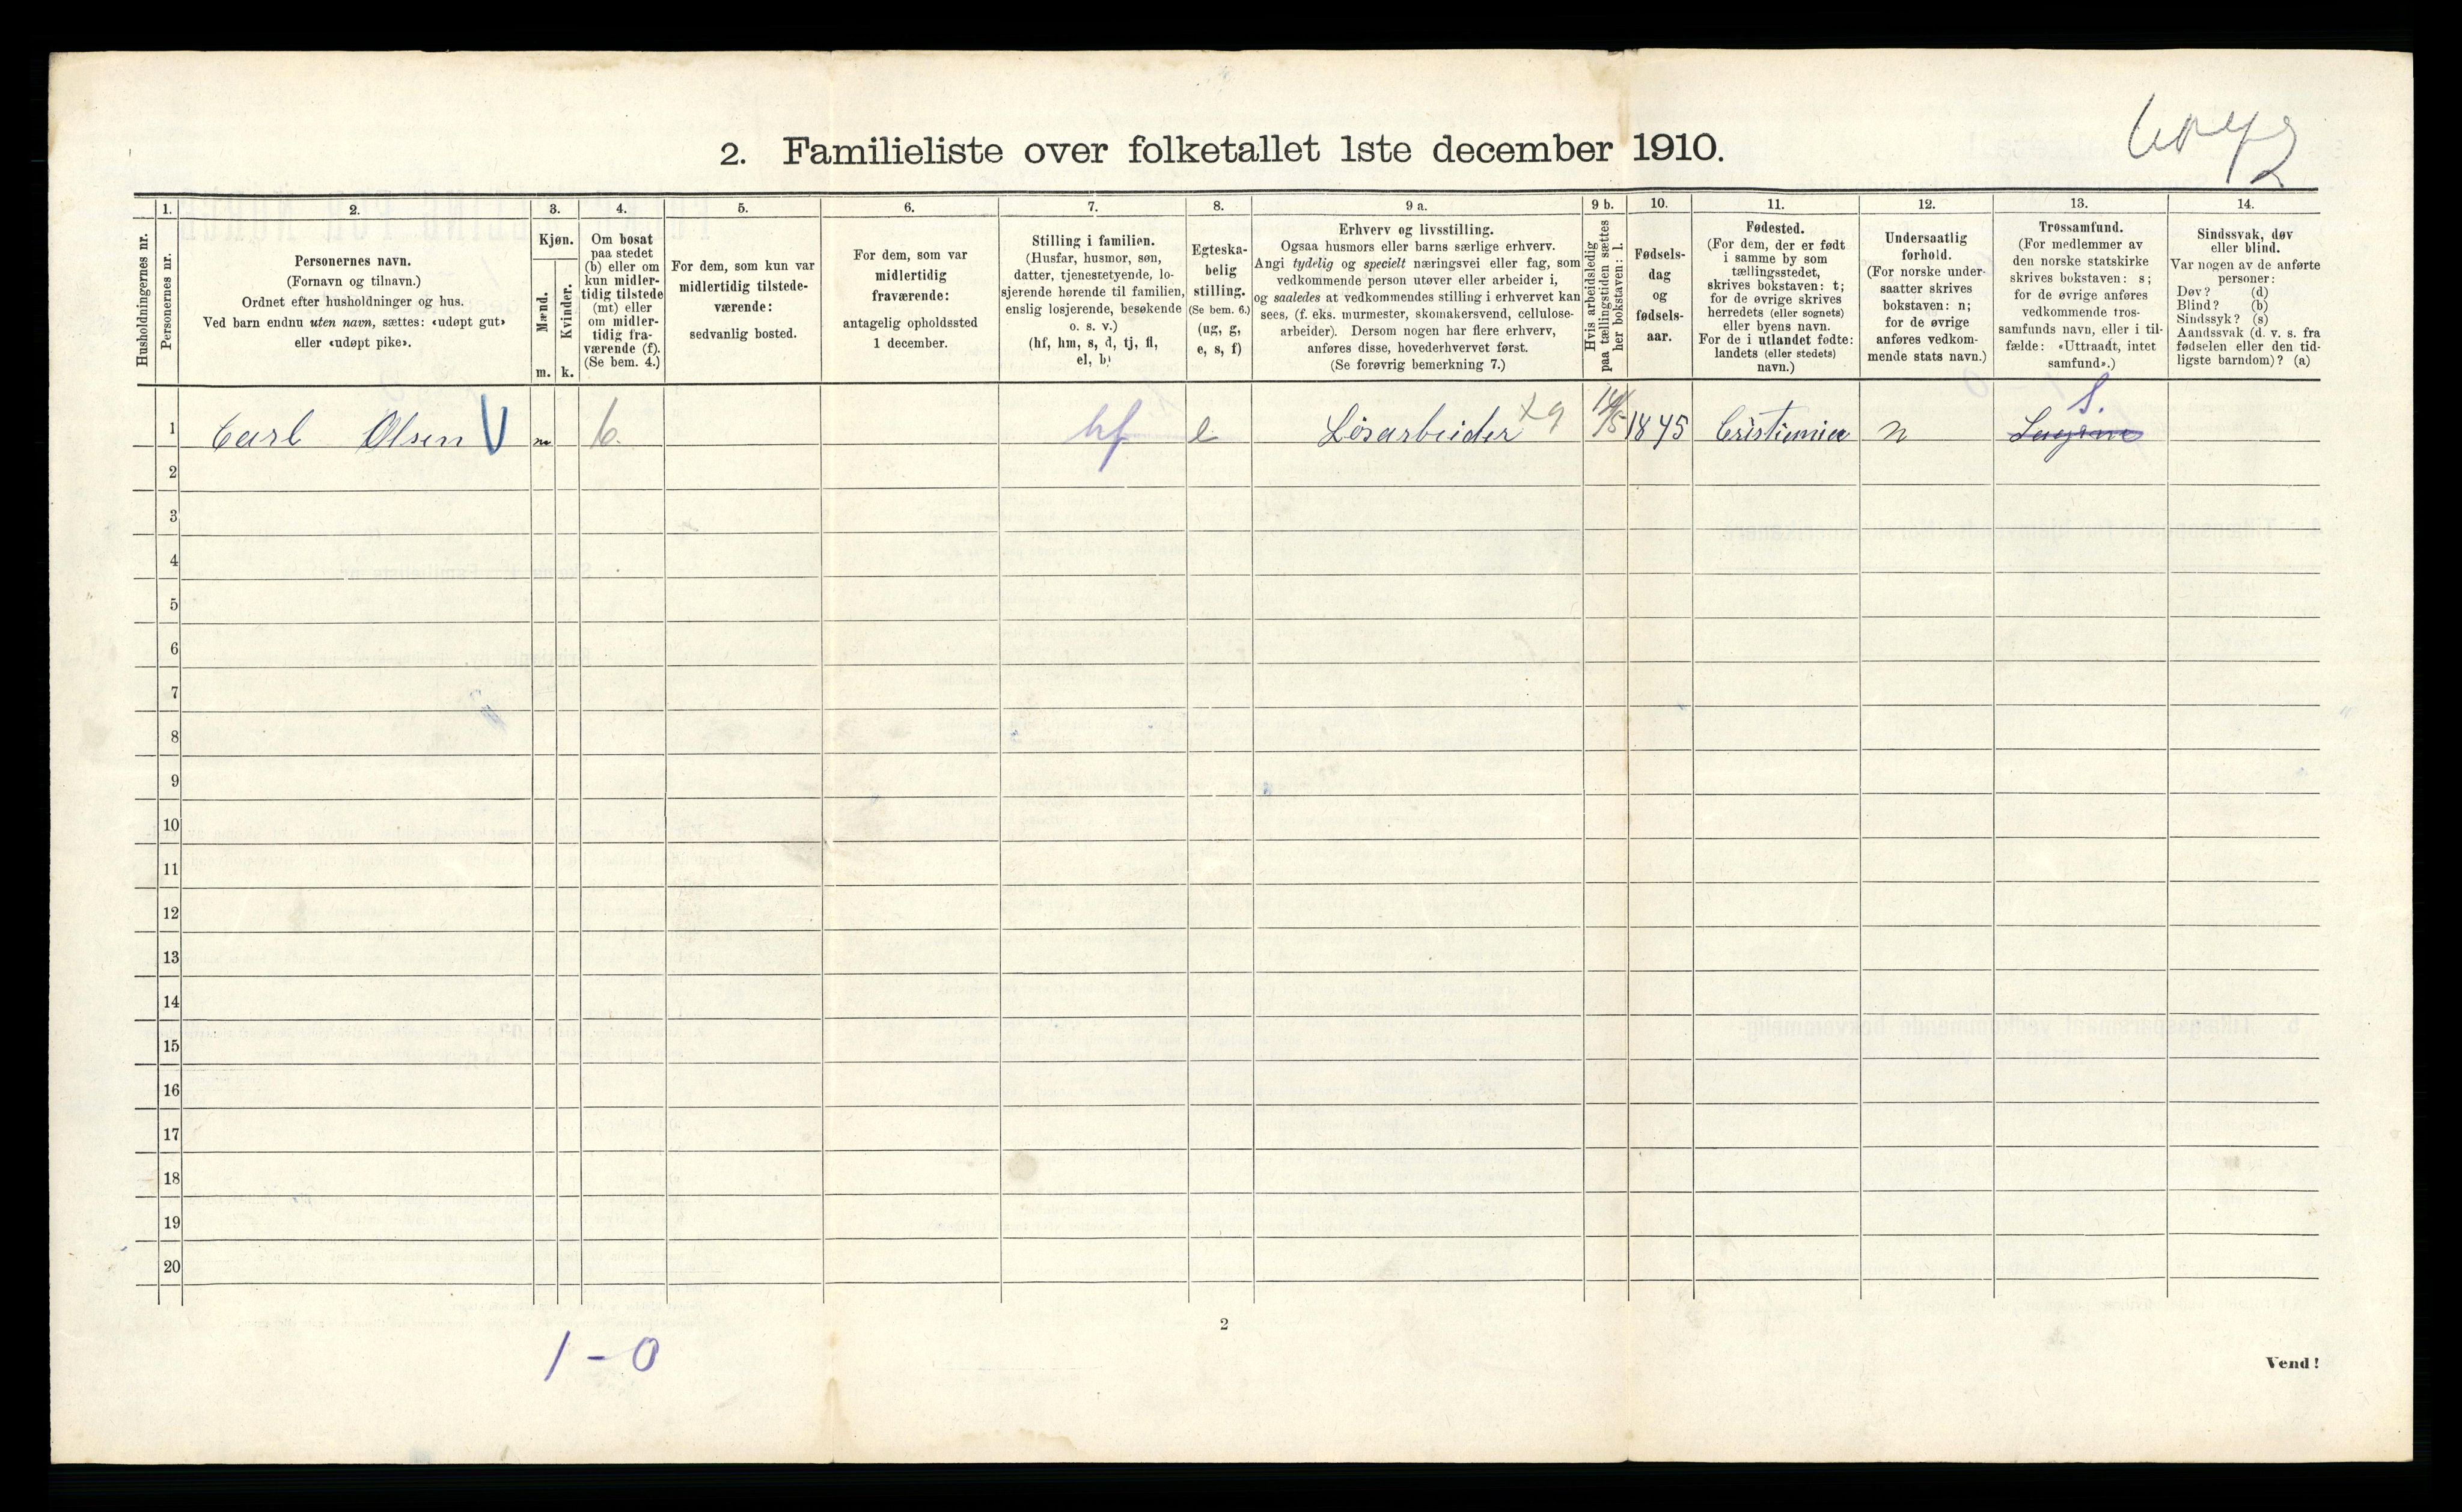 2. Familieliste over folketallet 1ste december 1910.
Husholdningernes nr.
1.
Personernes nr.
2.
Personernes navn.
(Fornavn og tilnavn.)
Ordnet efter husholdninger og hus.
Ved barn endnu uten navn, sættes: «udøpt gut»
eller «udøpt pike».
3.
Kjøn.
Mænd.
Kvinder.
m.
k.
4.
Om bosat
paa stedet
(b) eller om
kun midler-
tidig tilstede
(mt) eller
om midler-
tidig fra-
værende (f).
(Se bem. 4.)
5.
For dem, som kun var
midlertidig tilstede-
værende:
sedvanlig bosted.
6.
For dem, som var
midlertidig
fraværende:
antagelig opholdssted
1 december.
7.
Stilling i familien.
(Husfar, husmor, søn,
datter, tjenestetyende, lo-
sjerende hørende til familien,
enslig losjerende, besøkende
o. s. v.)
(hf, hm, s, d, tj, fl,
el, b)
8.
Egteska-
belig
stilling.
(Se bem. 6.)
(ug, g,
e, s, f)
9 a.
Erhverv og livsstilling.
Ogsaa husmors eller barns særlige erhverv.
Angi tydelig og specielt næringsvei eller fag, som
vedkommende person utøver eller arbeider i,
og saaledes at vedkommendes stilling i erhvervet kan
sees, (f. eks. murmester, skomakersvend, cellulose-
arbeider). Dersom nogen har flere erhverv,
anføres disse, hovederhvervet først.
(Se forøvrig bemerkning 7.)
9 b.
Hvis arbeidsledig
paa tællingstiden sættes
her bokstaven: l.
10.
Fødsels-
dag
og
fødsels-
aar.
11.
Fødested.
(For dem, der er født
i samme by som
tællingsstedet,
skrives bokstaven: t;
for de øvrige skrives
herredets (eller sognets)
eller byens navn.
For de i utlandet fødte:
landets (eller stedets)
navn.)
12.
Undersaatlig
forhold.
(For norske under-
saatter skrives
bokstaven: n;
for de øvrige
anføres vedkom-
mende stats navn.)
13.
Trossamfund.
(For medlemmer av
den norske statskirke
skrives bokstaven: s;
for de øvrige anføres
vedkommende tros-
samfunds navn, eller i til-
fælde: «Uttraadt, intet
samfund».)
14.
Sindssvak, døv
eller blind.
Var nogen av de anførte
personer:
Døv? (d)
Blind? (b)
Sindssyk? (s)
Aandssvak (d. v. s. fra
fødselen eller den tid-
ligste barndom)? (a)
1 Carl Olsen m b. hf e Løsarbeider x9 14/5 1845 Cristiania n s.
2
3
4
5
6
7
8
9
10
11
12
13
14
15
16
17
18
19
20
2
1 - 0
Vend!